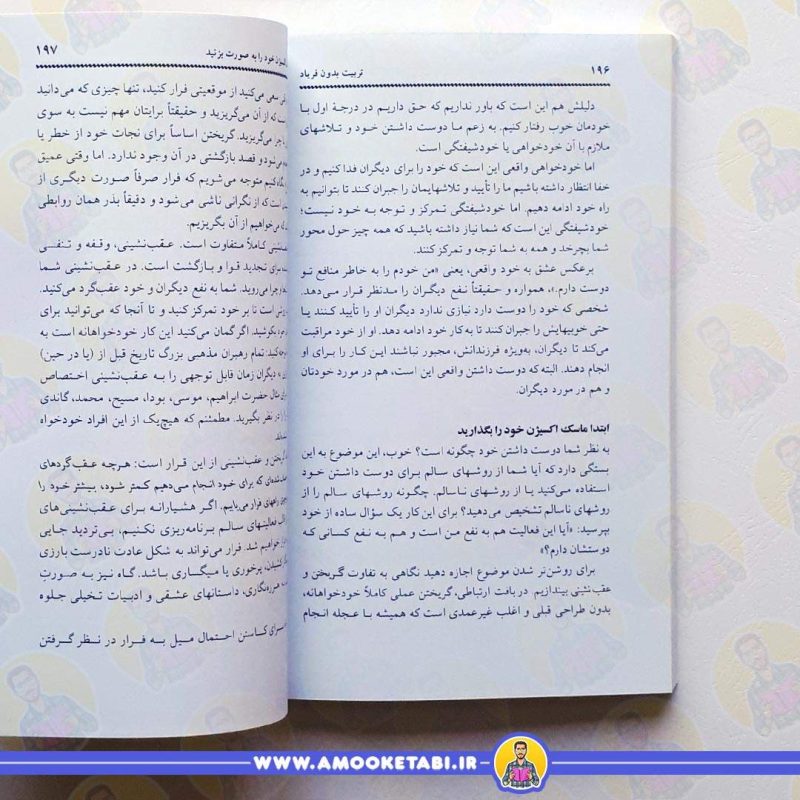 ۱۹۶
تربیت بدون فریاد
دلیلش هم این است که باور نداریم که حق داریم در درجهٔ اول با
خودمان خوب رفتار کنیم. به زعم ما دوست داشتن خود و تلاشهای
ملازم با آن خودخواهی یا خودشیفتگی است.
اما خودخواهی واقعی این است که خود را برای دیگران فدا کنیم و در
خفا انتظار داشته باشیم ما را تأیید و تلاشهایمان را جبران کنند تا بتوانیم به
راه خود ادامه دهیم. اما خودشیفتگی تمرکز و توجه به خود نیست؛
خودشیفتگی این است که شما نیاز داشته باشید که همه چیز حول محور
شما بچرخد و همه به شما توجه و تمرکز کنند.
برعکس عشق به خود واقعی، یعنی «من خودم را به خاطر منافع تو
دوست دارم.»، همواره و حقیقتاً نفع دیگران را مدنظر قرار می‌دهد.
شخصی که خود را دوست دارد نیازی ندارد دیگران او را تأیید کنند یا
حتی خوبیهایش را جبران کنند تا به کار خود ادامه دهد. او از خود مراقبت
می‌کند تا دیگران، به‌ویژه فرزندانش، مجبور نباشند این کار را برای او
انجام دهند. البته که دوست داشتن واقعی این است، هم در مورد خودتان
و هم در مورد دیگران.
ابتدا ماسک اکسیژن خود را بگذارید
به نظر شما دوست داشتن خود چگونه است؟ خوب، این موضوع به این
بستگی دارد که آیا شما از روشهای سالم برای دوست داشتن خود
استفاده می‌کنید یا از روشهای ناسالم. چگونه روشهای سالم را از
روشهای ناسالم تشخیص می‌دهید؟ برای این کار یک سؤال ساده از خود
بپرسید: «آیا این فعالیت هم به نفع من است و هم به نفع کسانی که
دوستشان دارم؟»
برای روشن‌تر شدن موضوع اجازه دهید نگاهی به تفاوت گریختن و
عقب‌نشینی بیندازیم. در بافت ارتباطی، گریختن عملی کاملاً خودخواهانه،
بدون طراحی قبلی و اغلب غیرعمدی است که همیشه با عجله انجام
خود را به صورت بزنید
۱۹۷
سعی می‌کنید از موقعیتی فرار کنید، تنها چیزی که می‌دانید
که از آن می‌گریزید و حقیقتاً برایتان مهم نیست به سوی
چرا می‌گریزید. گریختن اساساً برای نجات خود از خطر یا
و قصد بازگشتی در آن وجود ندارد. اما وقتی عمیق
کنیم متوجه می‌شویم که فرار صرفاً صورت دیگری از
است که از نگرانی ناشی می‌شود و دقیقاً بذر همان روابطی
می‌خواهیم از آن بگریزیم.
کاملاً متفاوت است. عقب‌نشینی، وقفه و تنفسی
برای تجدید قوا و بازگشت است. در عقب‌نشینی شما
می‌روید. شما به نفع دیگران و خود عقب‌گرد می‌کنید.
است تا بر خود تمرکز کنید و تا آنجا که می‌توانید برای
بکوشید. اگر گمان می‌کنید این کار خودخواهانه است به
کنید: تمام رهبران مذهبی بزرگ تاریخ قبل از (یا در حین)
دیگران زمان قابل توجهی را به عقب‌نشینی اختصاص
حضرت ابراهیم، موسی، بودا، مسیح، محمد، گاندی
در نظر بگیرید. مطمئنم که هیچ‌یک از این افراد خودخواه
و عقب‌نشینی از این قرار است: هرچه عقب‌گردهای
برای خود انجام می‌دهیم کمتر شود، بیشتر خود را
راههای فرار می‌یابیم. اگر هشیارانه برای عقب‌نشینی‌های
فعالیتهای سالم برنامه‌ریزی نکنیم، بی‌تردید جایی
خواهیم شد. فرار می‌تواند به شکل عادت نادرست بارزی
پرخوری یا میگساری باشد. گاه نیز به صورتِ
هرزه‌نگاری، داستانهای عشقی و ادبیات تخیلی جلوه
کاستن احتمال میل به فرار در نظر گرفتن
WWW.AMOOKETABI.IR